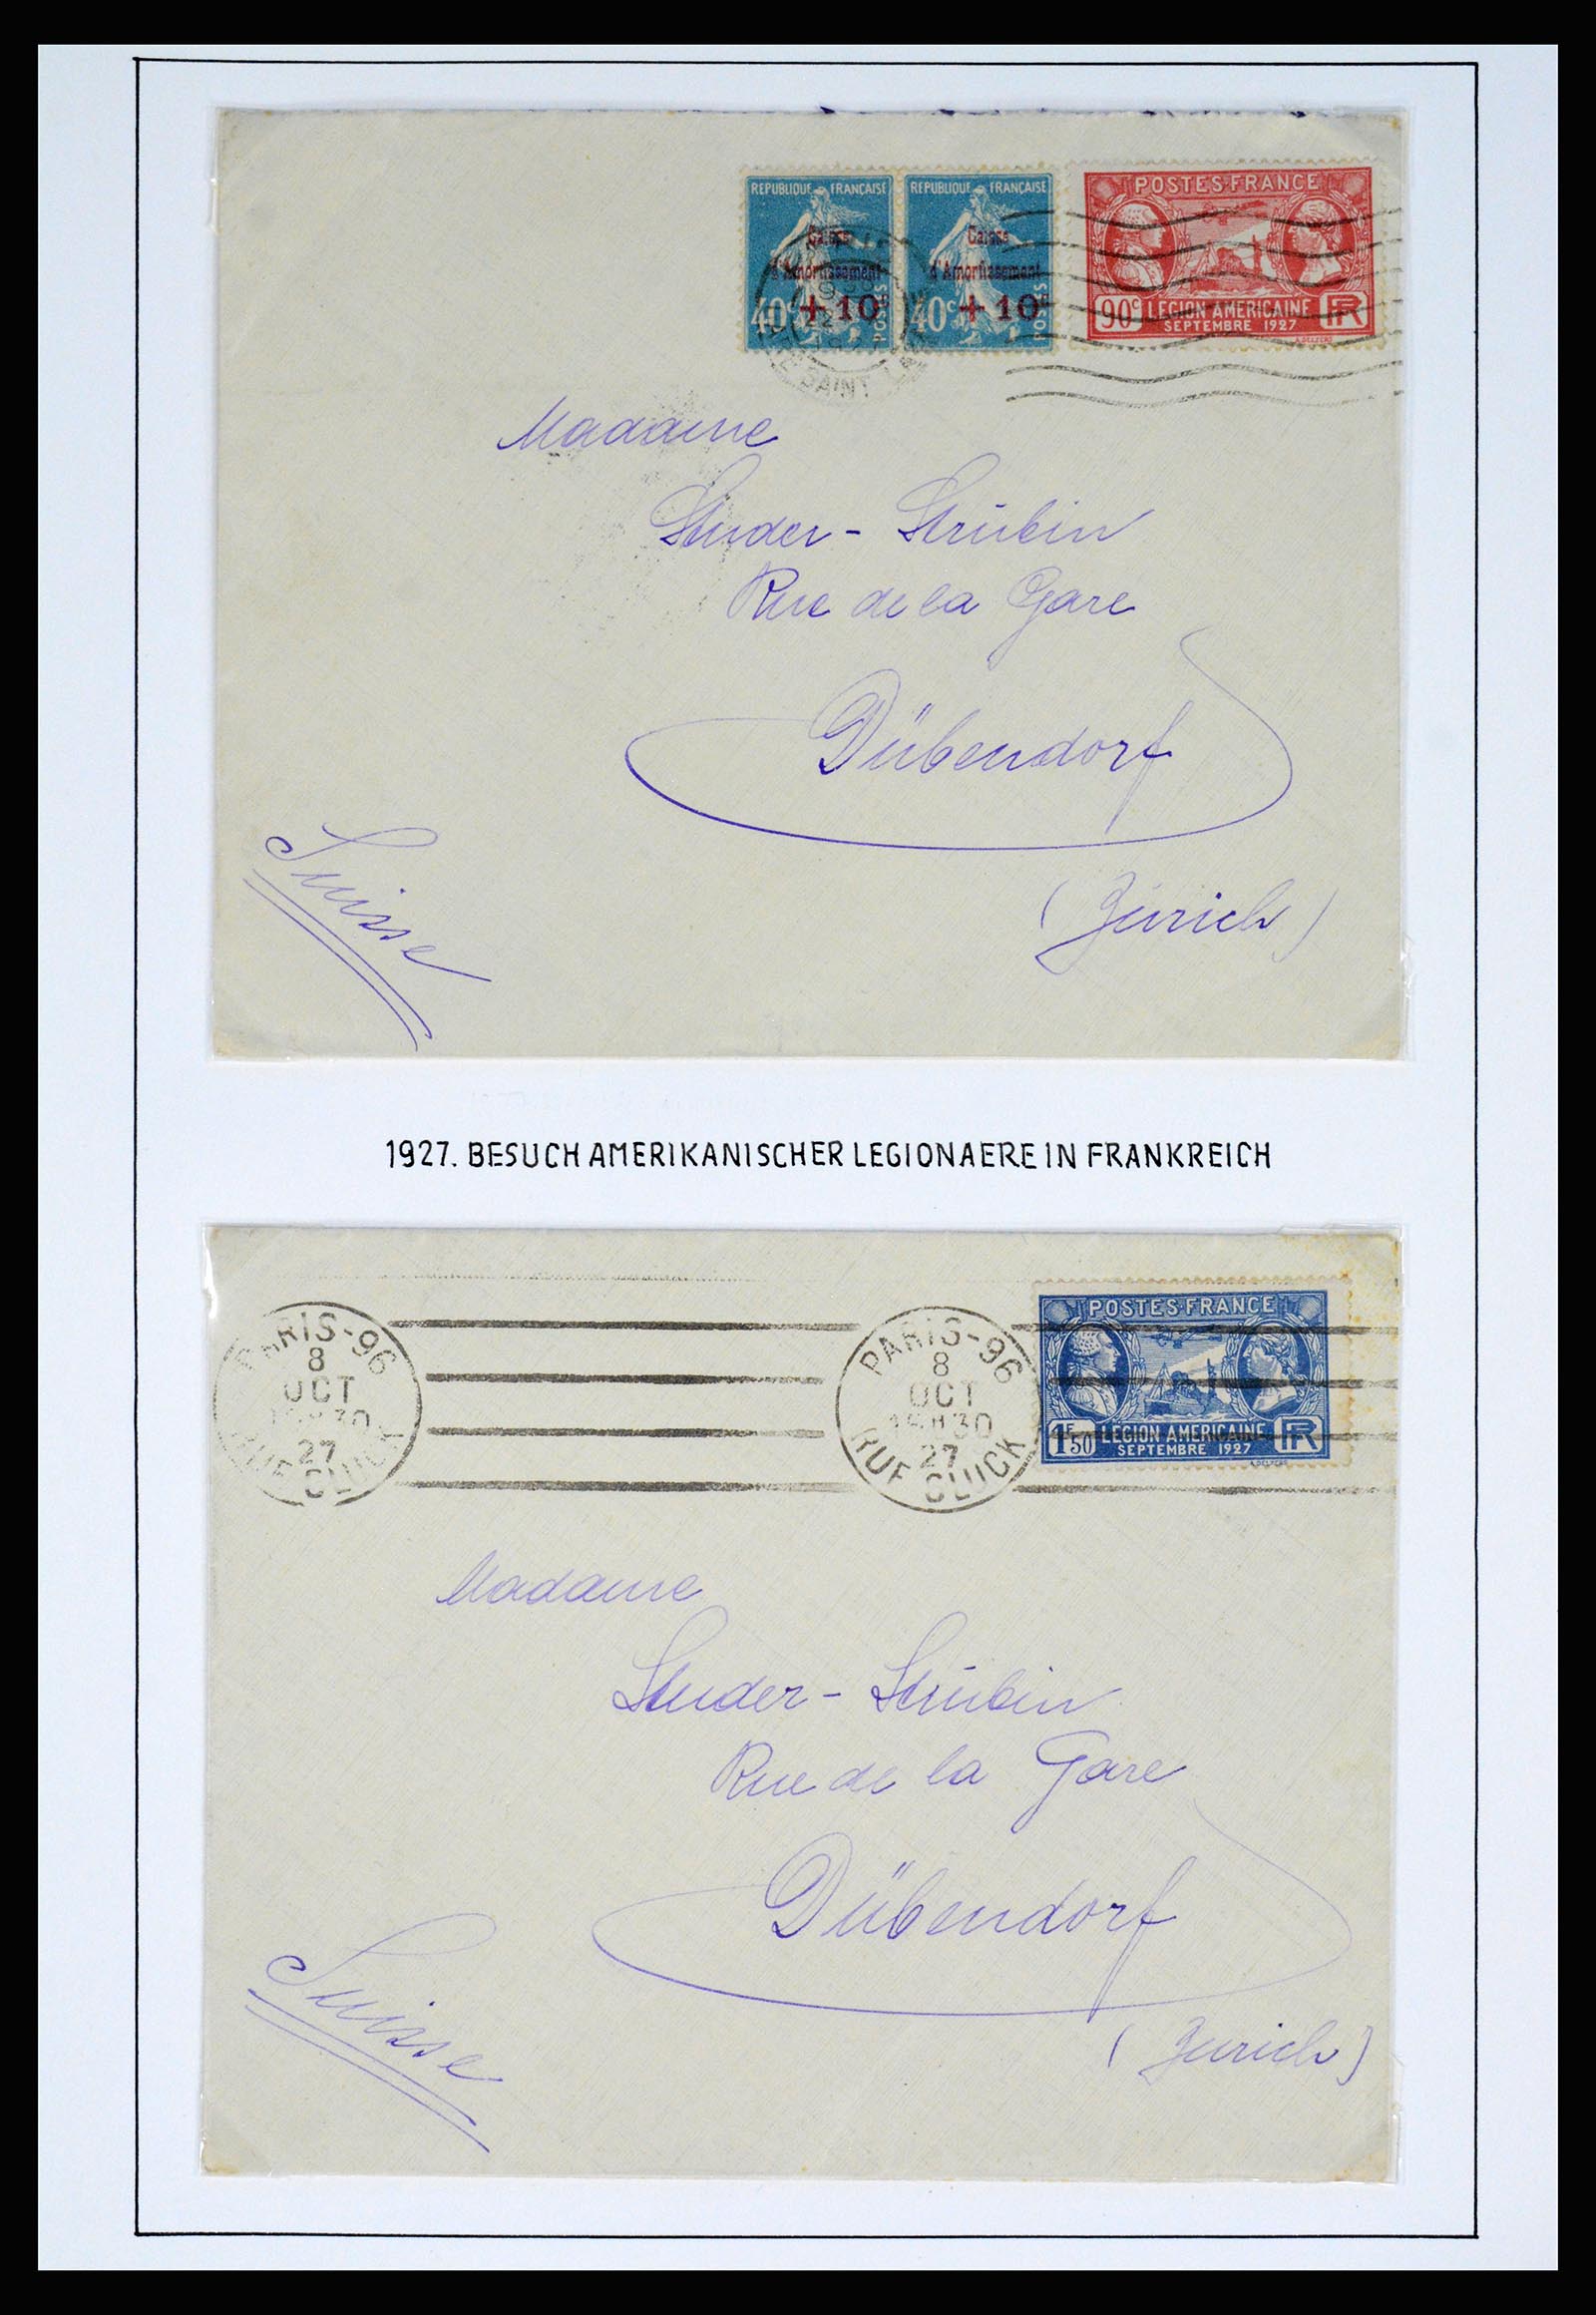 REPUBLIQUE FRANÇAISE
Caisse
d'Amortissement
40c +10
POSTES
REPUBLIQUE FRANÇAISE
Caisse
d'Amortissement
40c +10
POSTES
POSTES·FRANCE
90c LEGION AMERICAINE RF
SEPTEMBRE 1927
SAINT
Madame
Studer-Strübin
Rue de la Gare
Dübendorf
Suisse
(Zürich)
1927. BESUCH AMERIKANISCHER LEGIONAERE IN FRANKREICH
PARIS-96
8
OCT
27
RUE GLUCK
PARIS-96
8
OCT
30
27
RUE GLUCK
POSTES·FRANCE
1F50 LEGION AMERICAINE RF
SEPTEMBRE 1927
Madame
Studer-Strübin
Rue de la Gare
Dübendorf
Suisse
(Zurich)